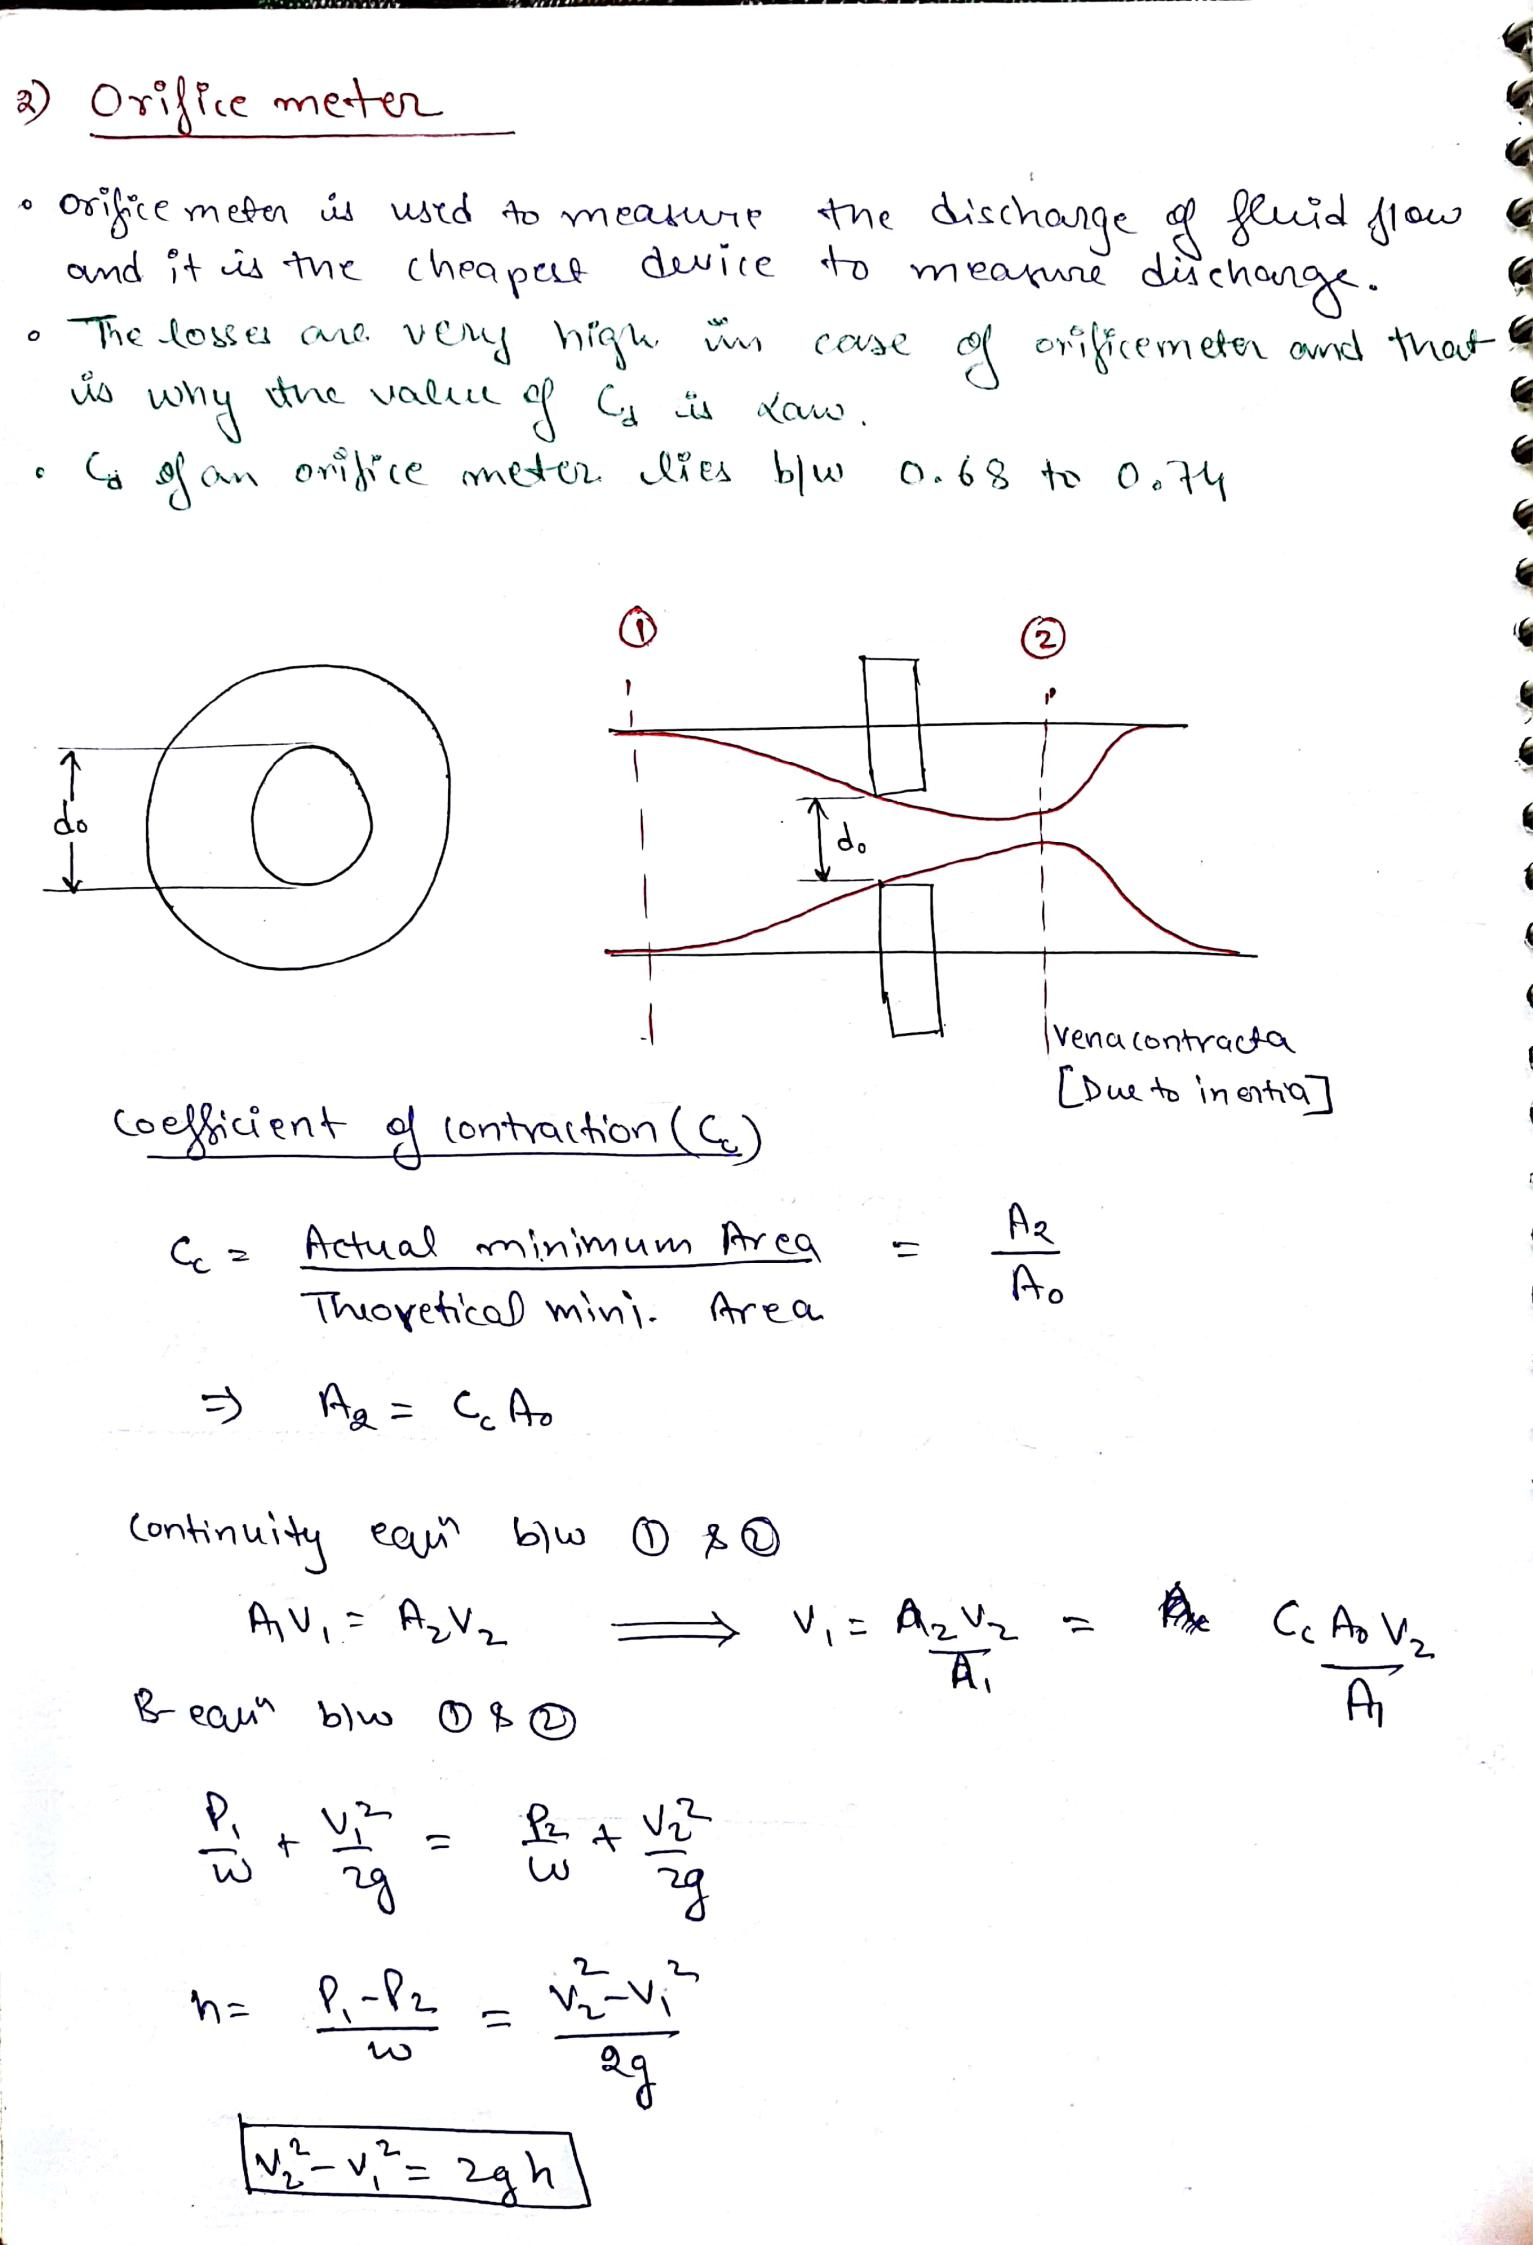 2) Orifice meter
• Orifice meter is used to measure the discharge of fluid flow
and it is the cheapest device to measure discharge.
• The losses are very high in case of orificemeter and that
is why the value of Cd is Law.
• Cd of an orifice meter lies b/w 0.68 to 0.74
① ②
do
do
vena contracta
[Due to inertia]
Coefficient of contraction (Cc)
Cc = Actual minimum Area / Theoretical mini. Area = A2 / Ao
⇒ A2 = Cc Ao
Continuity equⁿ b/w ① & ②
A1V1 = A2V2 ⟹ V1 = A2V2 / A1 = Cc Ao V2 / A1
B-equⁿ b/w ① & ②
P1/w + V1²/2g = P2/w + V2²/2g
h = P1-P2 / w = V2²-V1² / 2g
V2² - V1² = 2gh